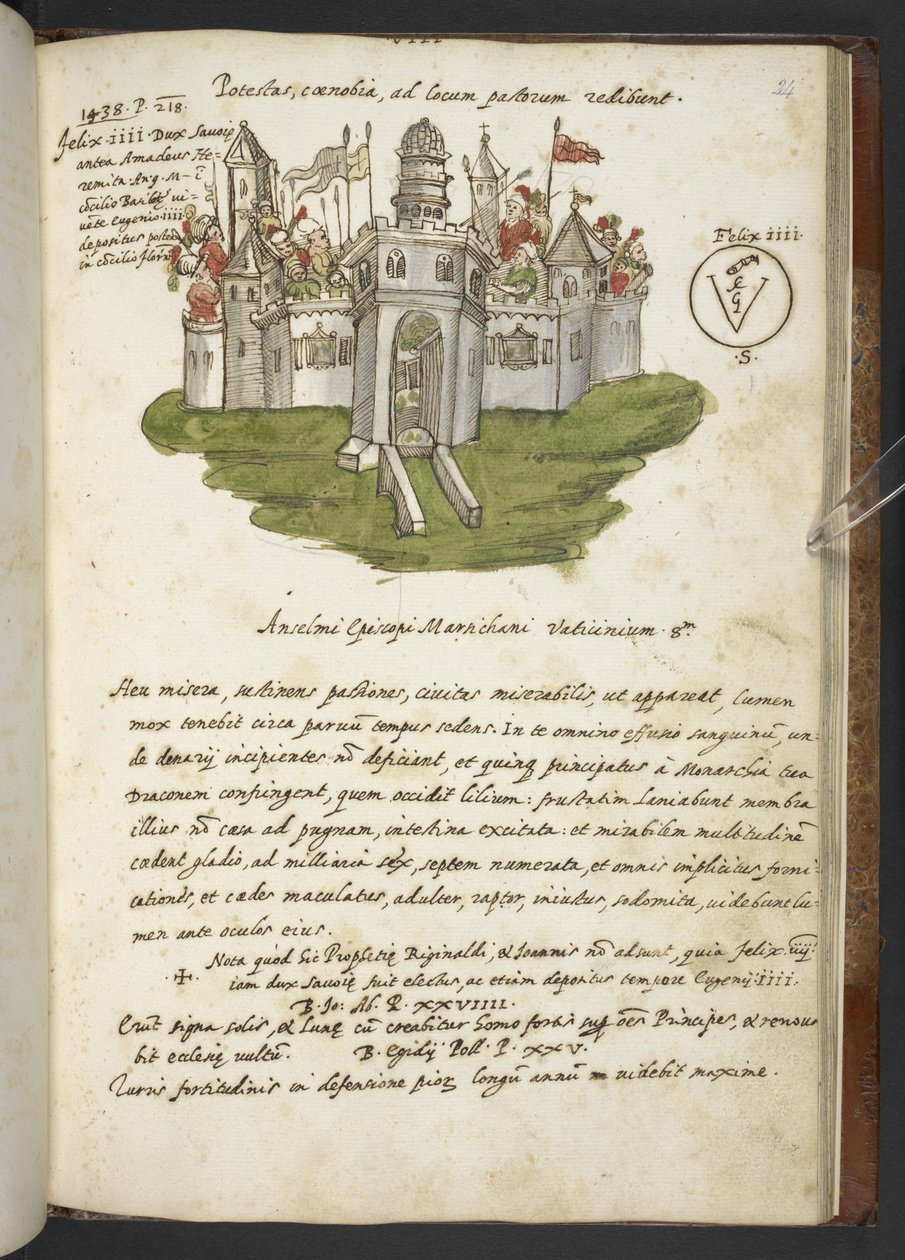 VIII
24
Potestas, cœnobia, ad locum pastorum redibunt.
1438. P. 218.
Felix. iiii. Dux Sauoię
antea Amadeus He=
remita An. 9. M- i
cōcilio Basilę vi=
uēte Eugenio iiii.
depositus postea
in cōcilio Flor.
Felix iiii.
.S.
Anselmi Episcopi Marsichani Vaticinium. 8.m
Heu misera, sustinens passiones, ciuitas miserabilis, ut appareat, lumen
mox tenebit circa paruū tempus sedens. In te omnino effusio sanguinū, un=
de denarij incipientes nō deficiant, et quinq principatus à Monarchia tua
Draconem confringent, quem occidit lilium: frustatim laniabunt membra
illius nō cæsa ad pugnam, intestina excitata: et mirabilem multitudinē
cædent gladio, ad milliaria sex, septem numerata, et omnis implicitus forni=
cationes, et cædes maculatus, adulter, raptor, iniustus, sodomita, uidebunt lu=
men ante oculos eius.
Nota quòd hic Prophetię Riginaldi, & Ioannis nō adsunt, quia Felix. iiij.
✠. iam dux Sauoię fuit electus, ac etiam depositus tempore Eugenij. iiii.
B. Jo: Ab. P. XXVIIII.
Erūt signa solis, & Lunę cū creabitur homo fortis sup oēs Principes, & renoua
bit ecclesię uultū. B. Egidij Poll. P. XXV.
Turris fortitudinis in defensione pioꝝ longū annū uidebit maxime.